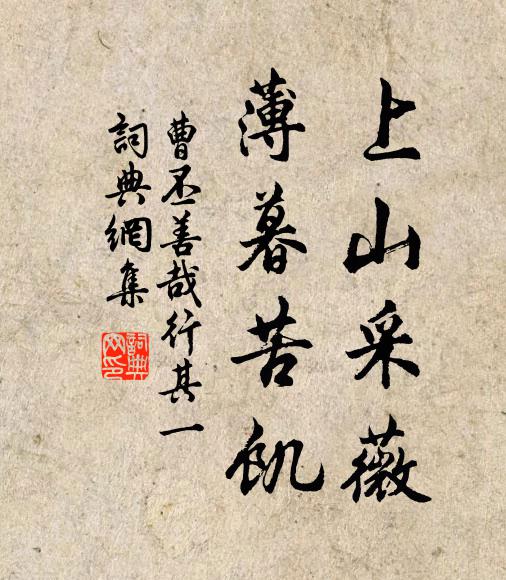 上山采薇
薄暮苦飢
曹丕善哉行其一
詞典網集
詞典
网印